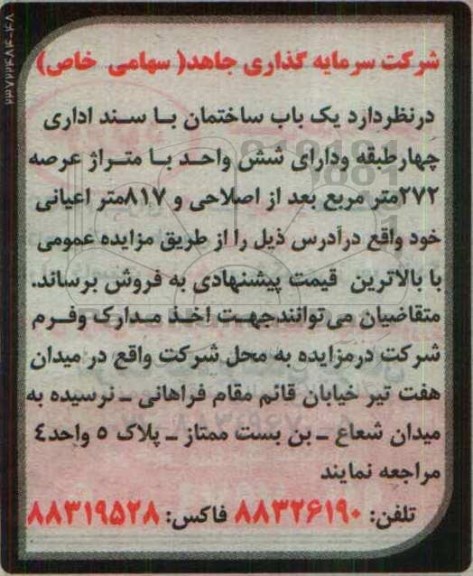 شرکت سرمایه گذاری جاهد( سهامی خاص)
درنظردارد یک باب ساختمان بـا سـند اداری
چهارطبقه ودارای شش واحـد بـا متـراژ عرصه
۲۷۲متر مربع بعد از اصلاحی و ۸۱۷متر اعیانی
خود واقع درآدرس ذیل را از طریق مزایده عمومی
با بالاترین قیمت پیشنهادی به فروش برساند.
متقاضیان می‌توانندجهـت اخـذ مـدارک وفـرم
شرکت درمزایده به محل شرکت واقع در میدان
هفت تیر خیابان قائم مقام فراهانی ـ نرسیده به
میدان شعاع ـ بن بست ممتاز ـ پلاک ۵ واحد٤
مراجعه نمایند
تلفن: ۸۸۳۲۶۱۹۰ فاکس: ۸۸۳۱۹۵۲۸